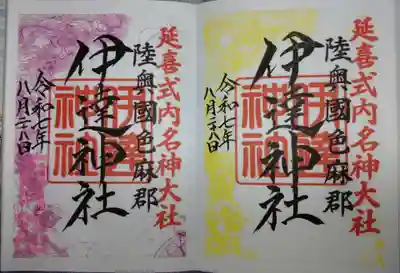 延喜式内名神大社
陸奥國色麻郡
伊達神社
伊達神社
令和七年
八月二八日
延喜式内名神大社
陸奥國色麻郡
伊達神社
伊達神社
令和七年
八月二八日